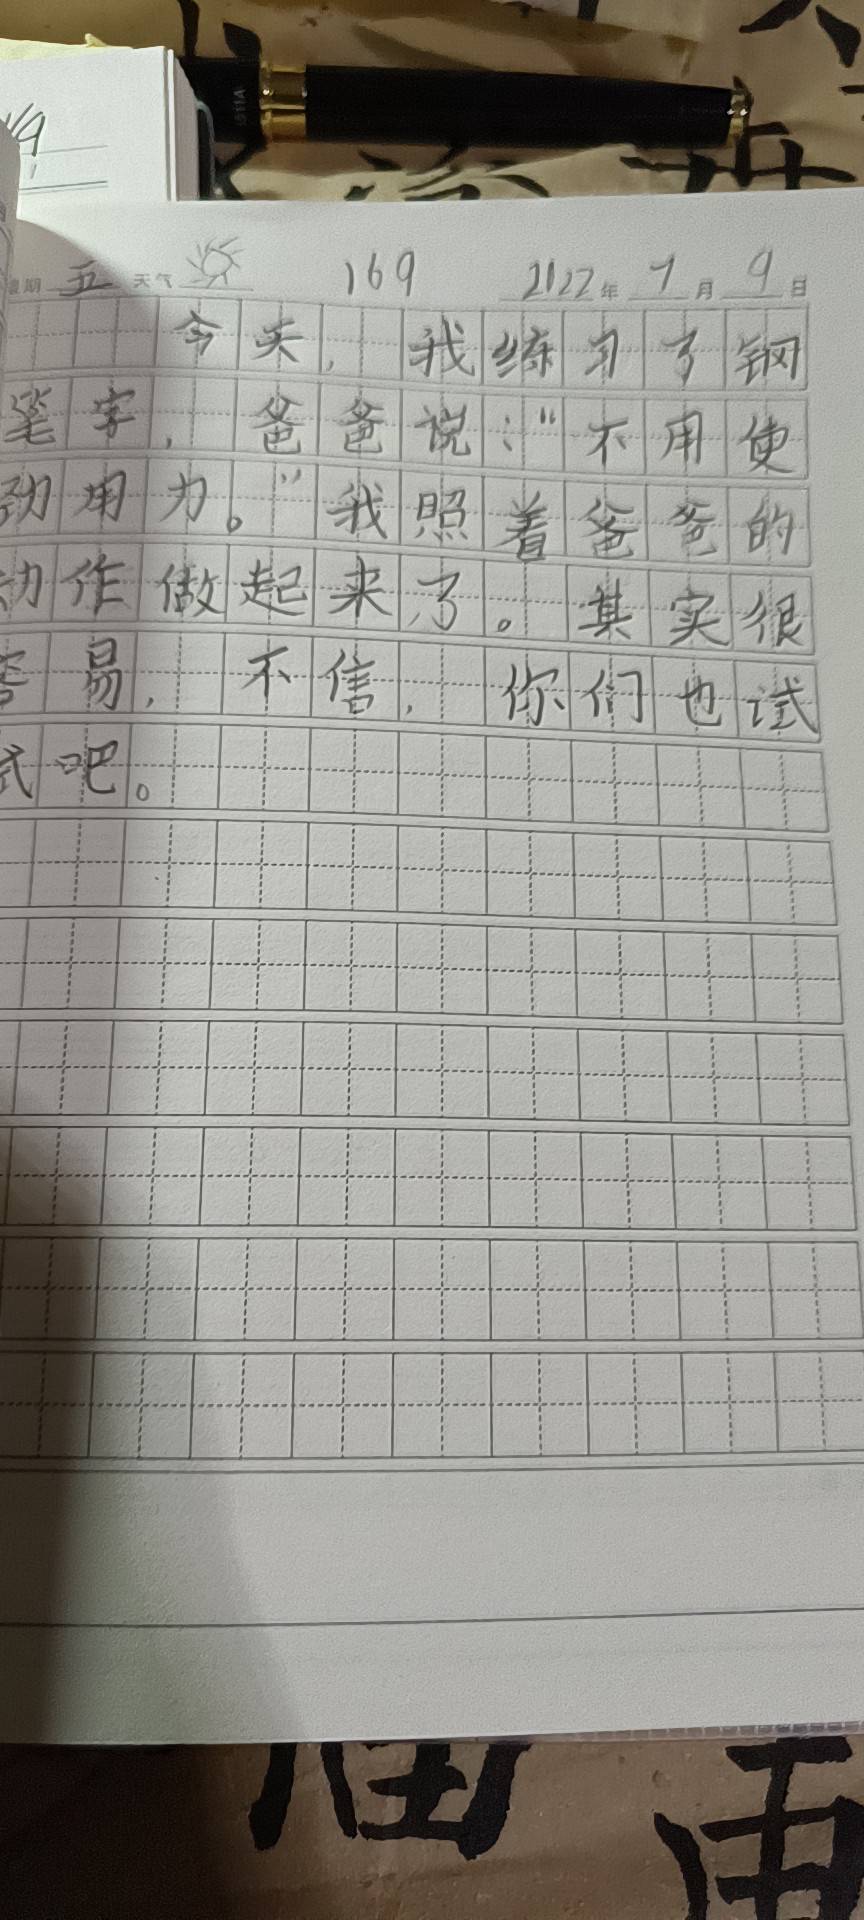 星期 五 天气 169 2022年 7月 9日
今天，我练习了钢
笔字，爸爸说：“不用使
劲用力。”我照着爸爸的
动作做起来了。其实很
容易，不信，你们也试
试吧。